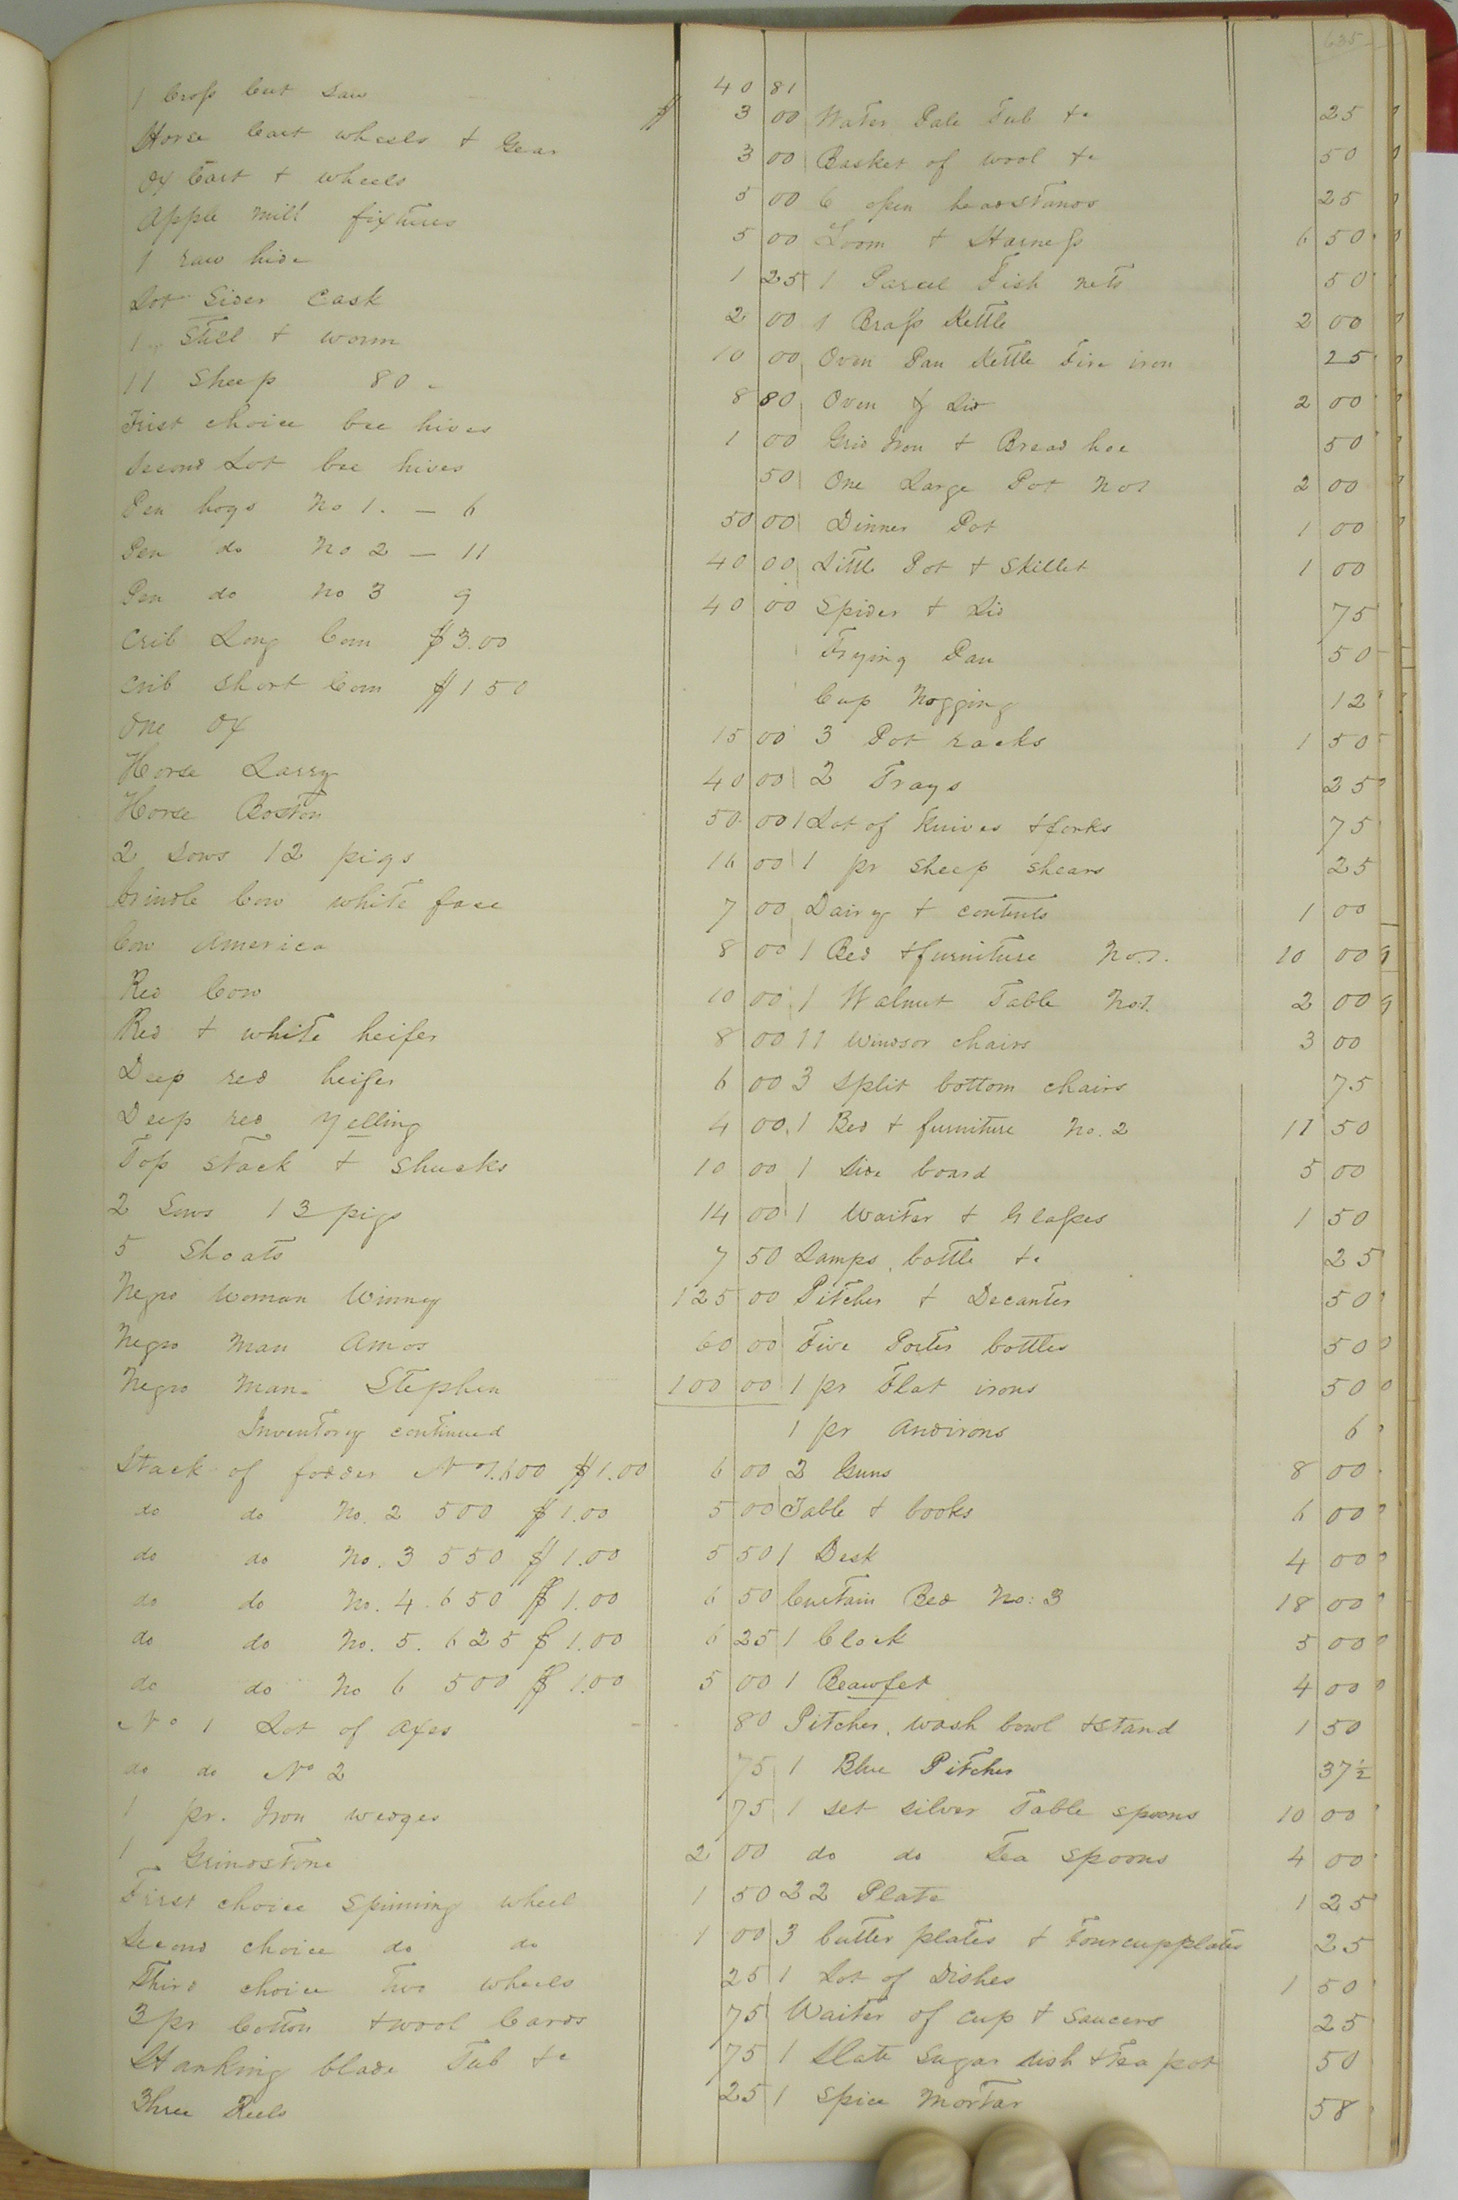 40 81
1 Cross Cut Saw $ 3 00
Horse Cart wheels + Gear 3 00
Ox Cart + wheels 5 00
Apple mill fixtures 5 00
1 raw hide 1 25
Lot Sider Cask 2 00
1 Still + worm 10 00
11 Sheep 80 8 80
First choice bee hives 1 00
Second Lot bee hives 50
Pen hogs No 1. — 6 50 00
Pen do No 2 — 11 40 00
Pen do No 3 9 40 00
Crib Long Corn $3.00
Crib Short Corn $1 50
One Ox 15 00
Horse Larry 40 00
Horse Boston 50 00
2 Sows 12 pigs 16 00
brindle Cow white face 7 00
Cow America 8 00
Red Cow 10 00
Red + white heifer 8 00
Deep red heifer 6 00
Deep red yelling 4 00
Top stack + shucks 10 00
2 Sows 13 pigs 14 00
5 Shoats 7 50
Negro Woman Winney 125 00
Negro Man Amos 60 00
Negro Man Stephen 100 00
Inventory continued
Stack of fodder No 1. 600 $1.00 6 00
do do No. 2 500 $1.00 5 00
do do No. 3 550 $1.00 5 50
do do No. 4. 650 $1.00 6 50
do do No. 5. 625 $1.00 6 25
do do No 6 500 $1.00 5 00
No 1 Lot of Axes 80
do do No 2 75
1 pr. Iron wedges 75
1 Grindstone 2 00
First choice Spinning wheel 1 50
Second choice do do 1 00
Third choice two wheels 25
3 pr Cotton + wool Cards 75
Hanking blade Tub &c 75
Three Reels 25
635
Water Pale Tub &c 25
Basket of wool &c 50
6 open headstands 25
Loom + Harness 6 50
1 Parcel Fish nets 50
1 Brass Kettle 2 00
Oven Pan Kettle Fire iron 25
Oven & Lid 2 00
Grid Iron + Bread hoe 50
One Large Pot No 1 2 00
Dinner Pot 1 00
Little Pot + Skillet 1 00
Spider + Lid 75
Frying Pan 50
Cup Nogging 12
3 Pot racks 1 50
2 Trays 25
1 Lot of Knives + forks 75
1 pr sheep shears 25
Dairy + contents 1 00
1 Bed + furniture No. 1. 10 00
1 Walnut Table No 1. 2 00
11 Windsor chairs 3 00
3 split bottom chairs 75
1 Bed + furniture No. 2 11 50
1 Side board 5 00
1 Waiter + Glasses 1 50
Lamps, bottle &c 25
Pitcher + Decanter 50
Five Porter bottles 50
1 pr Flat irons 50
1 pr Andirons 6
2 Guns 8 00
Table + books 6 00
1 Desk 4 00
Curtain Bed No: 3 18 00
1 Clock 5 00
1 Beawfet 4 00
Pitcher, wash bowl + stand 1 50
1 Blue Pitcher 37½
1 set silver Table spoons 10 00
do do Tea spoons 4 00
22 Plate 1 25
3 butter plates + four cupplates 25
1 Lot of Dishes 1 50
Waiter of Cup + Saucers 25
1 Slate Sugar dish + Tea pot 50
1 Spice Mortar 58